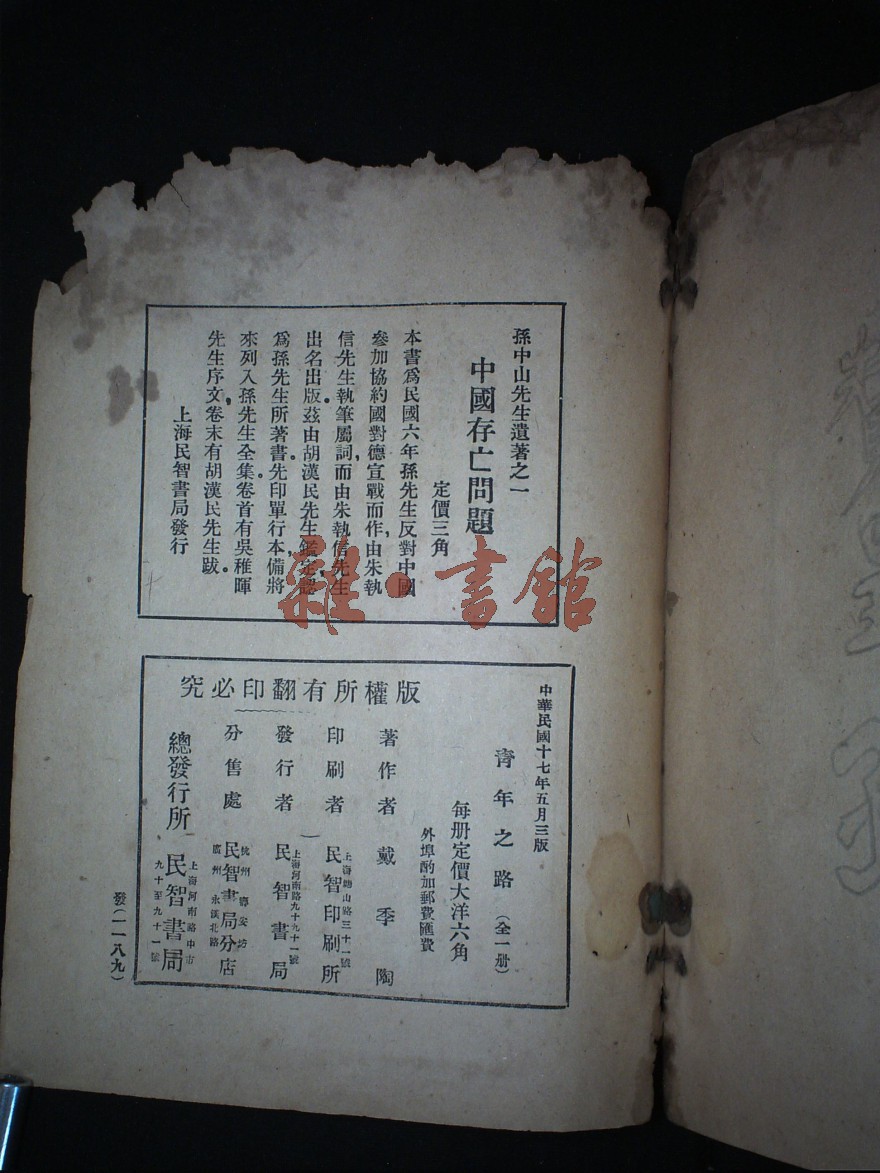 孫中山先生遺著之一
中國存亡問題
定價三角
本書爲民國六年孫先生反對中國
參加協約國對德宣戰而作,由朱執
信先生執筆屬詞,而由朱執信先生
出名出版.茲由胡漢民先生鑑定,認
爲孫先生所著書.先印單行本,備將
來列入孫先生全集.卷首有吳稚暉
先生序文,卷末有胡漢民先生跋.
上海民智書局發行
雜·書館
版權所有翻印必究
中華民國十七年五月三版
青年之路(全一册)
每册定價大洋六角
外埠酌加郵費匯費
著作者 戴季陶
印刷者 民智印刷所
發行者 上海河南路九十九十一號 民智書局
分售處 杭州 廣州 永漢北路 民智書局分店
總發行所 上海河南路中市 九十至九十一號 民智書局
發(一一八九)